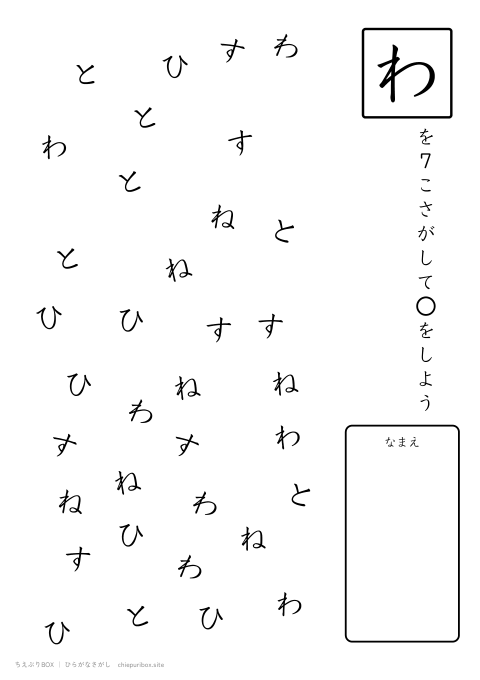 わ
を7こさがして○をしよう
なまえ
わ
す
ひ
と
と
す
わ
と
ね
と
と
ね
ひ
ひ
す
す
ひ
ね
ね
わ
す
す
わ
ね
ね
わ
と
ひ
ね
す
わ
わ
と
ひ
ひ
ちえぷりBOX | ひらがなさがし chiepuribox.site